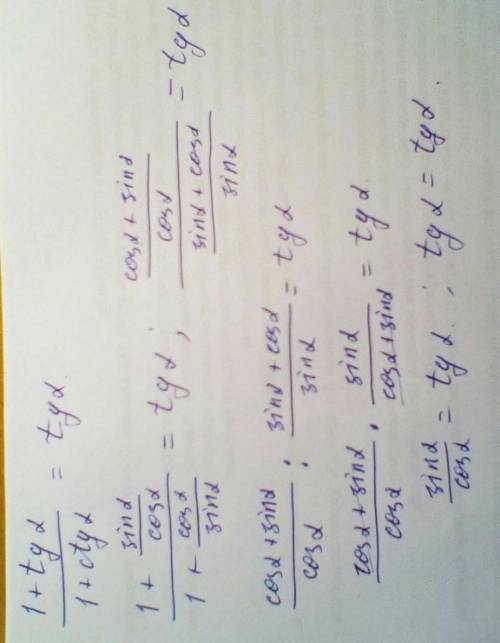 (1 + tg α) / (1 + ctg α) = tg α.
(1 + sin α / cos α) / (1 + cos α / sin α) = tg α ; ((cos α + sin α) / cos α) / ((sin α + cos α) / sin α) = tg α
(cos α + sin α) / cos α : (sin α + cos α) / sin α = tg α
(cos α + sin α) / cos α · sin α / (cos α + sin α) = tg α
sin α / cos α = tg α ; tg α = tg α.